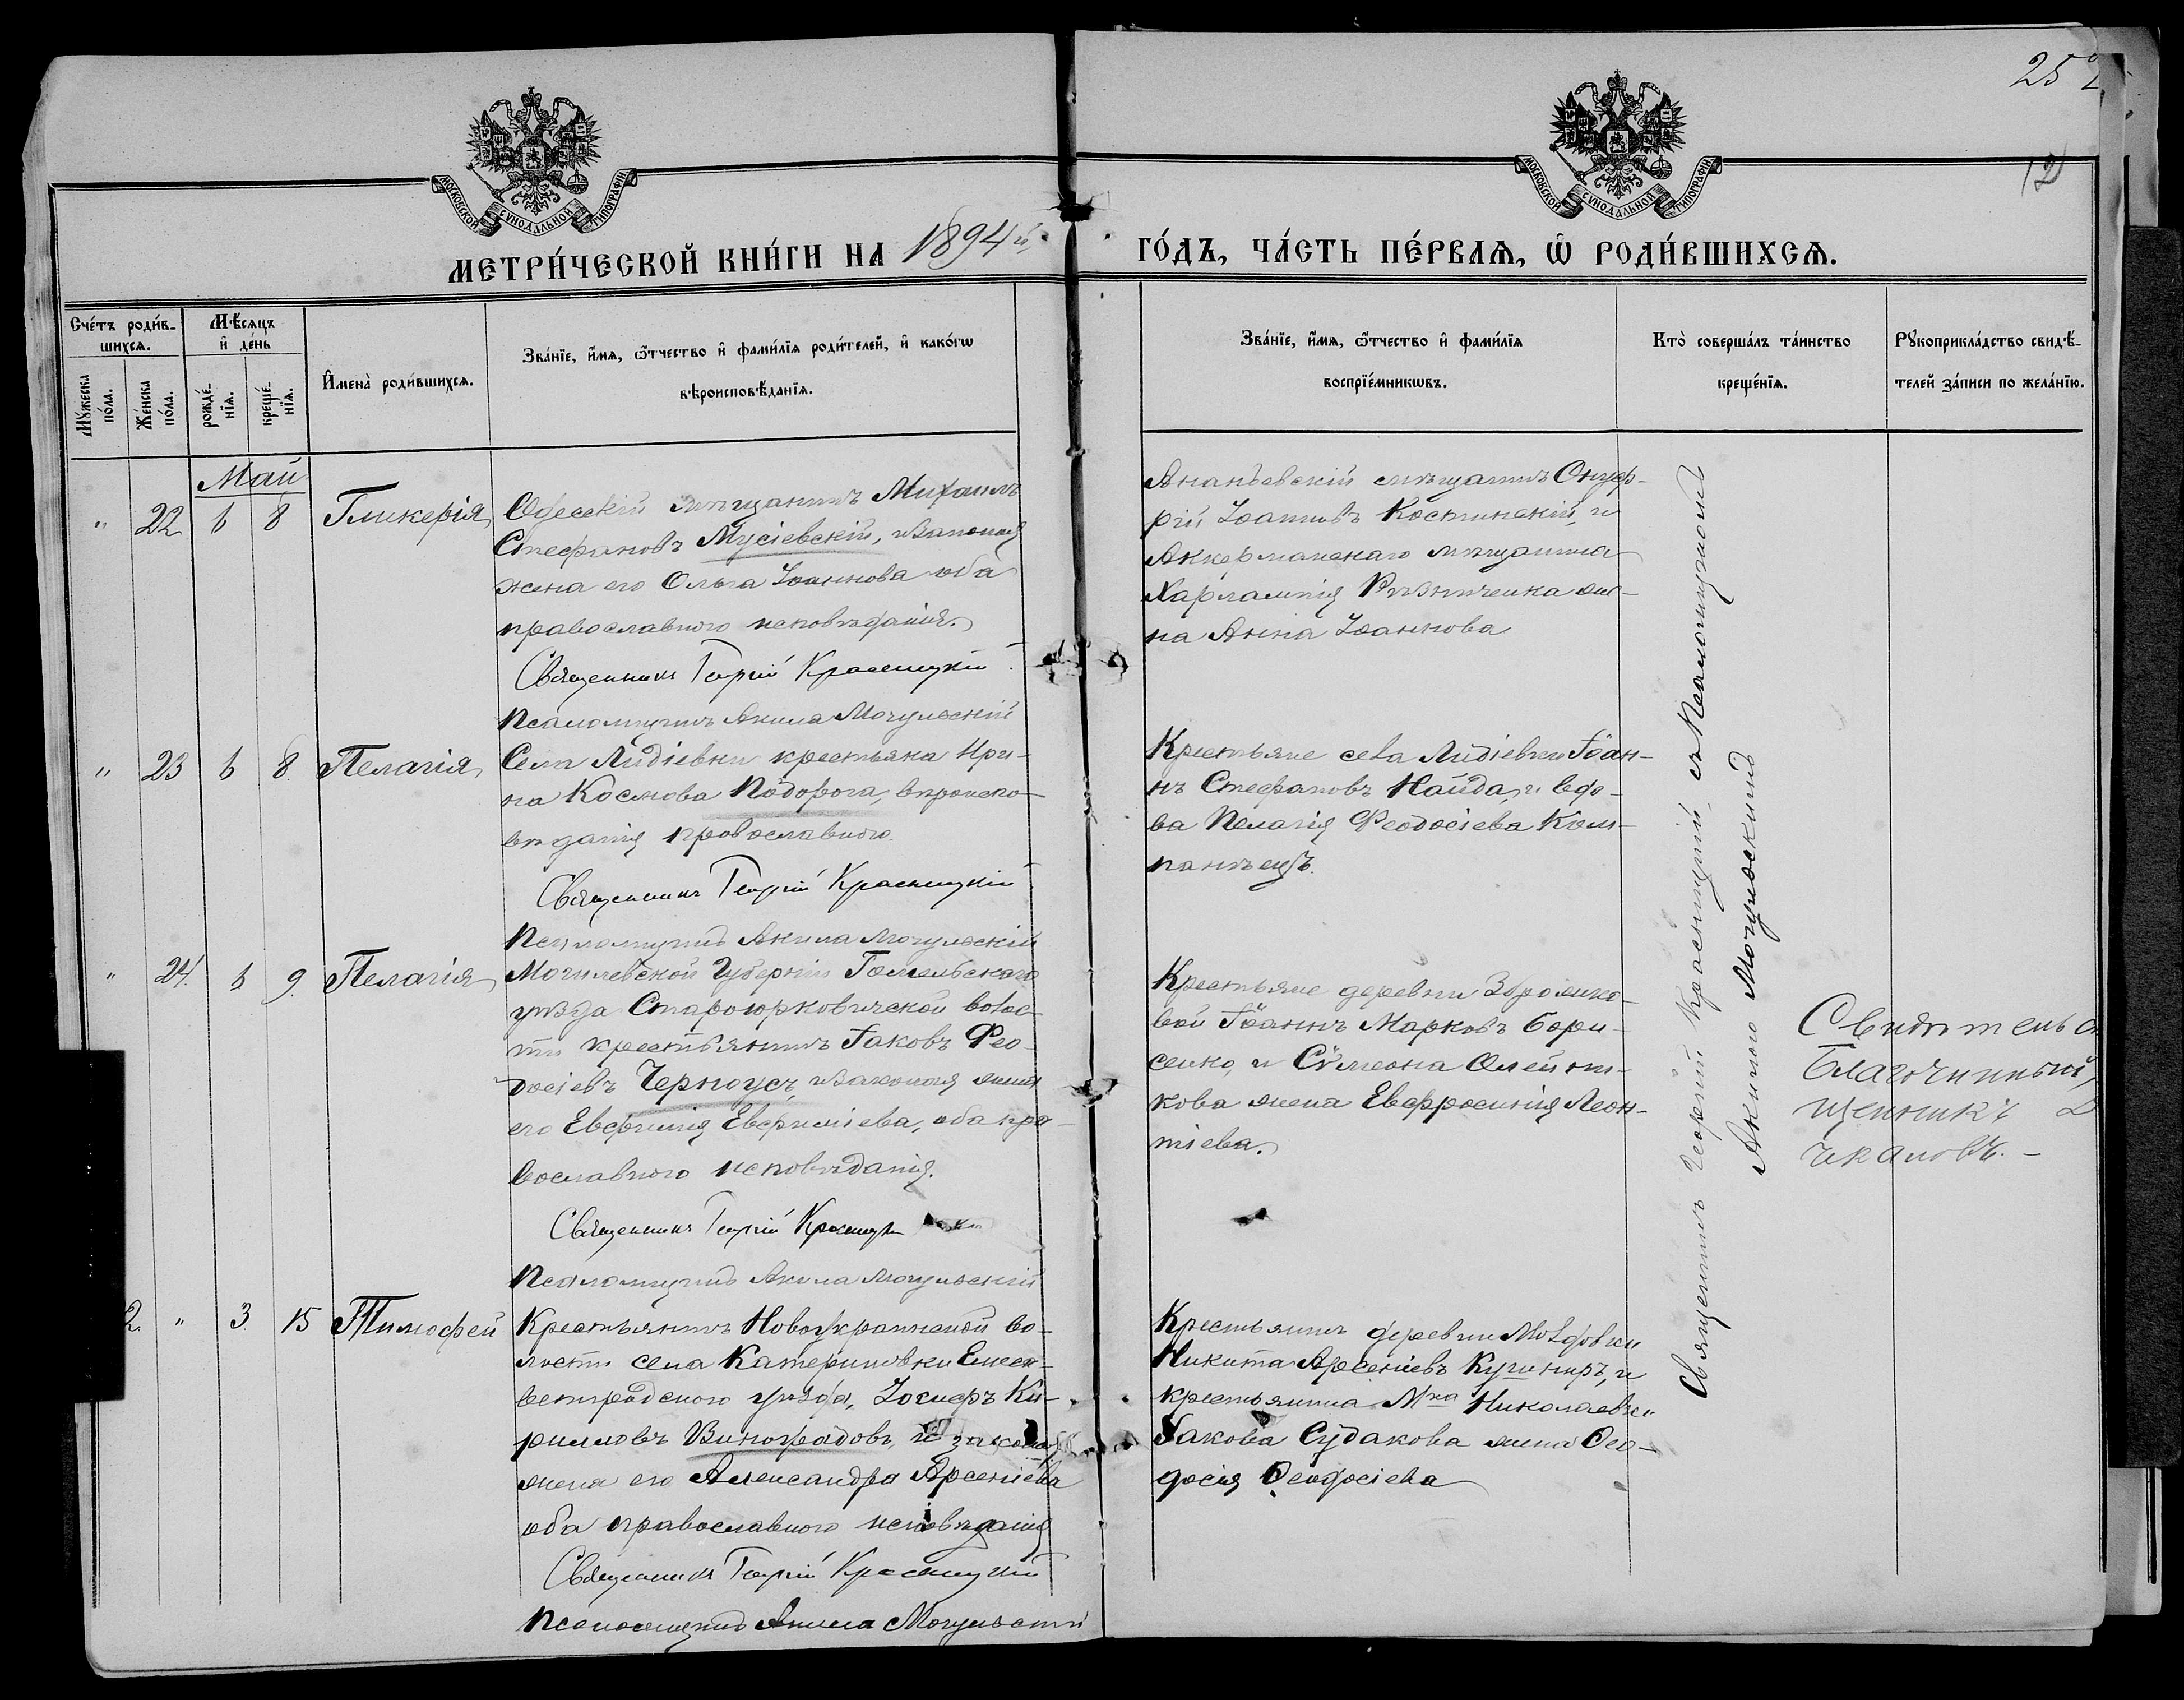 252
12
МОСКОВСКОЙ СѴНОДАЛЬНОЙ ТИПОГРАФІИ
МОСКОВСКОЙ СѴНОДАЛЬНОЙ ТИПОГРАФІИ
МЕТРИ́ЧЕСКОЙ КНИ́ГИ НА 1894й
ГО́ДЪ, ЧА́СТЬ ПЕ́РВАѦ, Ѡ РОДИ́ВШИХСѦ.
Сче́тъ роди́в-
шихсѧ.
Мꙋ́жеска по́ла.
Же́нска по́ла.
Мѣ́сѧцъ
и҆ де́нь
рожде́-
нїѧ.
креще́-
нїѧ.
И҆мена̀ роди́вшихсѧ.
Зва́нїе, и҆́мѧ, ѻ҆́тчество и҆ фами́лїѧ роди́телей, и҆ како́гѡ
вѣроисповѣ́данїѧ.
Зва́нїе, и҆́мѧ, ѻ҆́тчество и҆ фами́лїѧ
воспрїе́мникѡвъ.
Кто̀ соверша́лъ та́инство
креще́нїѧ.
Рꙋкоприкла́дство свидѣ́-
телей за́писи по жела́нїю.
Май
" 22 6 8 Гликерія
Одесскій мѣщанинъ Михаилъ
Стефановъ Мусіевскій, и законная
жена его Ольга Іоаннова оба
православного исповѣданія.
Священникъ Георгій Красницкій
Псаломщикъ Акила Могульскій
Ананьевскій мѣщанинъ Онуф-
рій Іоанновъ Костинскій, и
Аккерманскаго мѣщанина
Харлампія Рѣзниченка же-
на Анна Іоаннова
" 23 6 8. Пелагія
Села Лидіевки крестьянка Ири-
на Космова Подорога, вѣроиспо-
вѣданія православного.
Священникъ Георгій Красницкій
Псаломщикъ Акила Могульскій
Крестьяне села Лидіевки Іоан-
нъ Стефановъ Найда, и вдо-
ва Пелагія Феодосіева Ком-
панѣецъ.
" 24. 6 9. Пелагія
Могилевской Губерніи Гомельскаго
уѣзда Староюрковичской волос-
ти крестьянинъ Іаковъ Фео-
досіевъ Черноусъ, и законная жена
его Евфимія Евфиміева, оба пра-
вославного исповѣданія.
Священникъ Георгій
Псаломщикъ Акила Могульскій
Крестьяне деревни
вой Іоаннъ Марковъ Бори-
сенко, и Сѵмеона Олейни-
кова жена Евфросинія Леон-
тіева.
2. " 3. 15 Тимофей
Крестьянинъ Новоукраинской во-
лости села Катериновки Елиса-
ветградского уѣзда, Іосифъ Ки-
рилловъ Виноградовъ, и законная
жена его Александра Арсеніева
оба православного исповѣданія
Священникъ Георгій Красницкій
Псаломщикъ Акила Могульскій
Крестьянинъ деревни Молдовки
Никита Арсеніевъ Кушниръ, и
крестьянина Мка Николаевки
Іакова Судакова жена Фео-
досія Феодосіева
Священникъ Георгій Красницкій съ Псаломщикомъ
Акилою Могульскимъ
Свидѣтельс
Благочинный,
щенникъ
чкаловъ. -